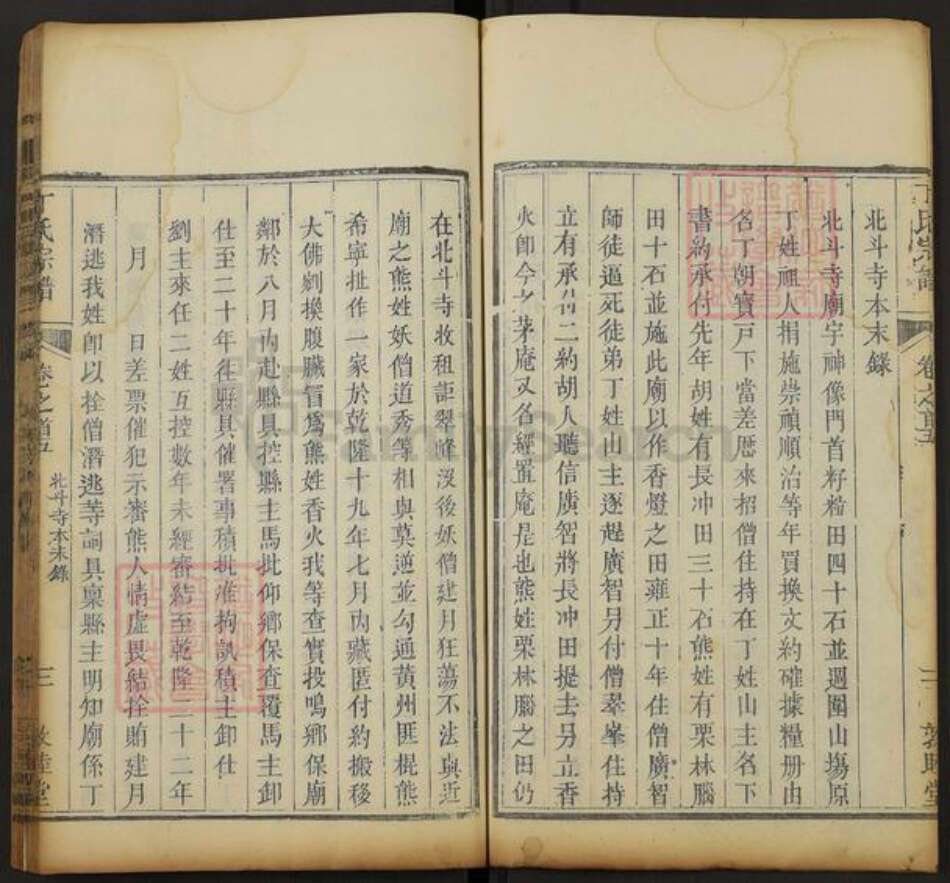 丁氏宗譜
卷之首五
敦睦堂
北斗寺本末錄
北斗寺廟宇神像門首籽粒田四十石並週圍山塲原
丁姓祖人捐施崇禎順治等年買換文約確據糧册由
名丁朝寶戸下當差歷來招僧住持在丁姓山主名下
書約承付先年胡姓有長冲田三十石熊姓有栗林腦
田十石並施此廟以作香燈之田雍正十年住僧廣智
師徒逼死徒弟丁姓山主逐趕廣智另付僧翠峯住持
立有承付二約胡人聽信廣智將長冲田提去另立香
火卽今之茅庵又名經置庵是也熊姓栗林腦之田仍
在北斗寺收租詎翠峰沒後妖僧建月狂蕩不法與近
廟之熊姓妖僧道秀等相與莫逆並勾通黃州匪棍熊
希寧扯作一家於乾隆十九年七月內藏匿付約搬移
大佛剜換腹臟冒爲熊姓香火我等查實投鳴鄉保廟
鄰於八月內赴縣具控縣主馬批仰鄉保查覆馬主卸
仕至二十年往縣具催署事積批准拘訊積主卸仕
劉主來任二姓互控數年未經審結至乾隆二十二年
月　日差票催犯示審熊人情虛畏結拴賄建月
潛逃我姓卽以拴僧潛逃等詞具稟縣主明知廟係丁
丁氏宗譜
卷之首五
北斗寺本末錄
三
敦睦堂
FamilySearch